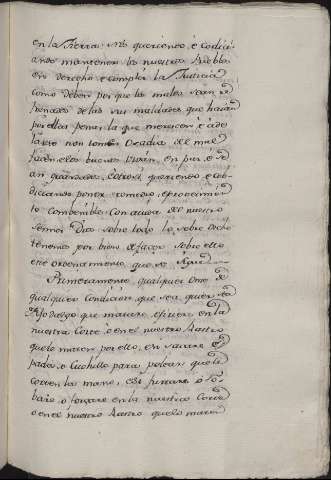 en la Tierra: nos queriendo, è codici-
ando mantener los nuestros Pueblos
en derecho, è complir la Justicia
como deben por que los malos sean re-
penados de las sus maldades que hacen
por ellas pena, la que merecen, è à de-
lante non tomen osadia del mal
facer, è los buenos vivan en paz, è se-
an guardados, è Nos queriendo, è cob-
diciando poner remedio, è proveimien-
to combenible, con aiuda del nuestro
Señor Dios sobre todo lo sobre dicho
tenemos por bien de facer sobre ello
este ordenamiento que se sigue
Primeramente, qualquier Ome de
qualquier condicion que sea, quier sea
Fijodalgo que matare, ó firiere en la
nuestra Corte, ò en el nuestro Rastro
que lo maten por ello, è si sacare es-
pada, ò Cuchillo para pelear, que le
corten la mano, è si furtare, ò Ro-
baro, ò forzare en la nuestra Corte
ò en el nuestro Rastro que lo maten